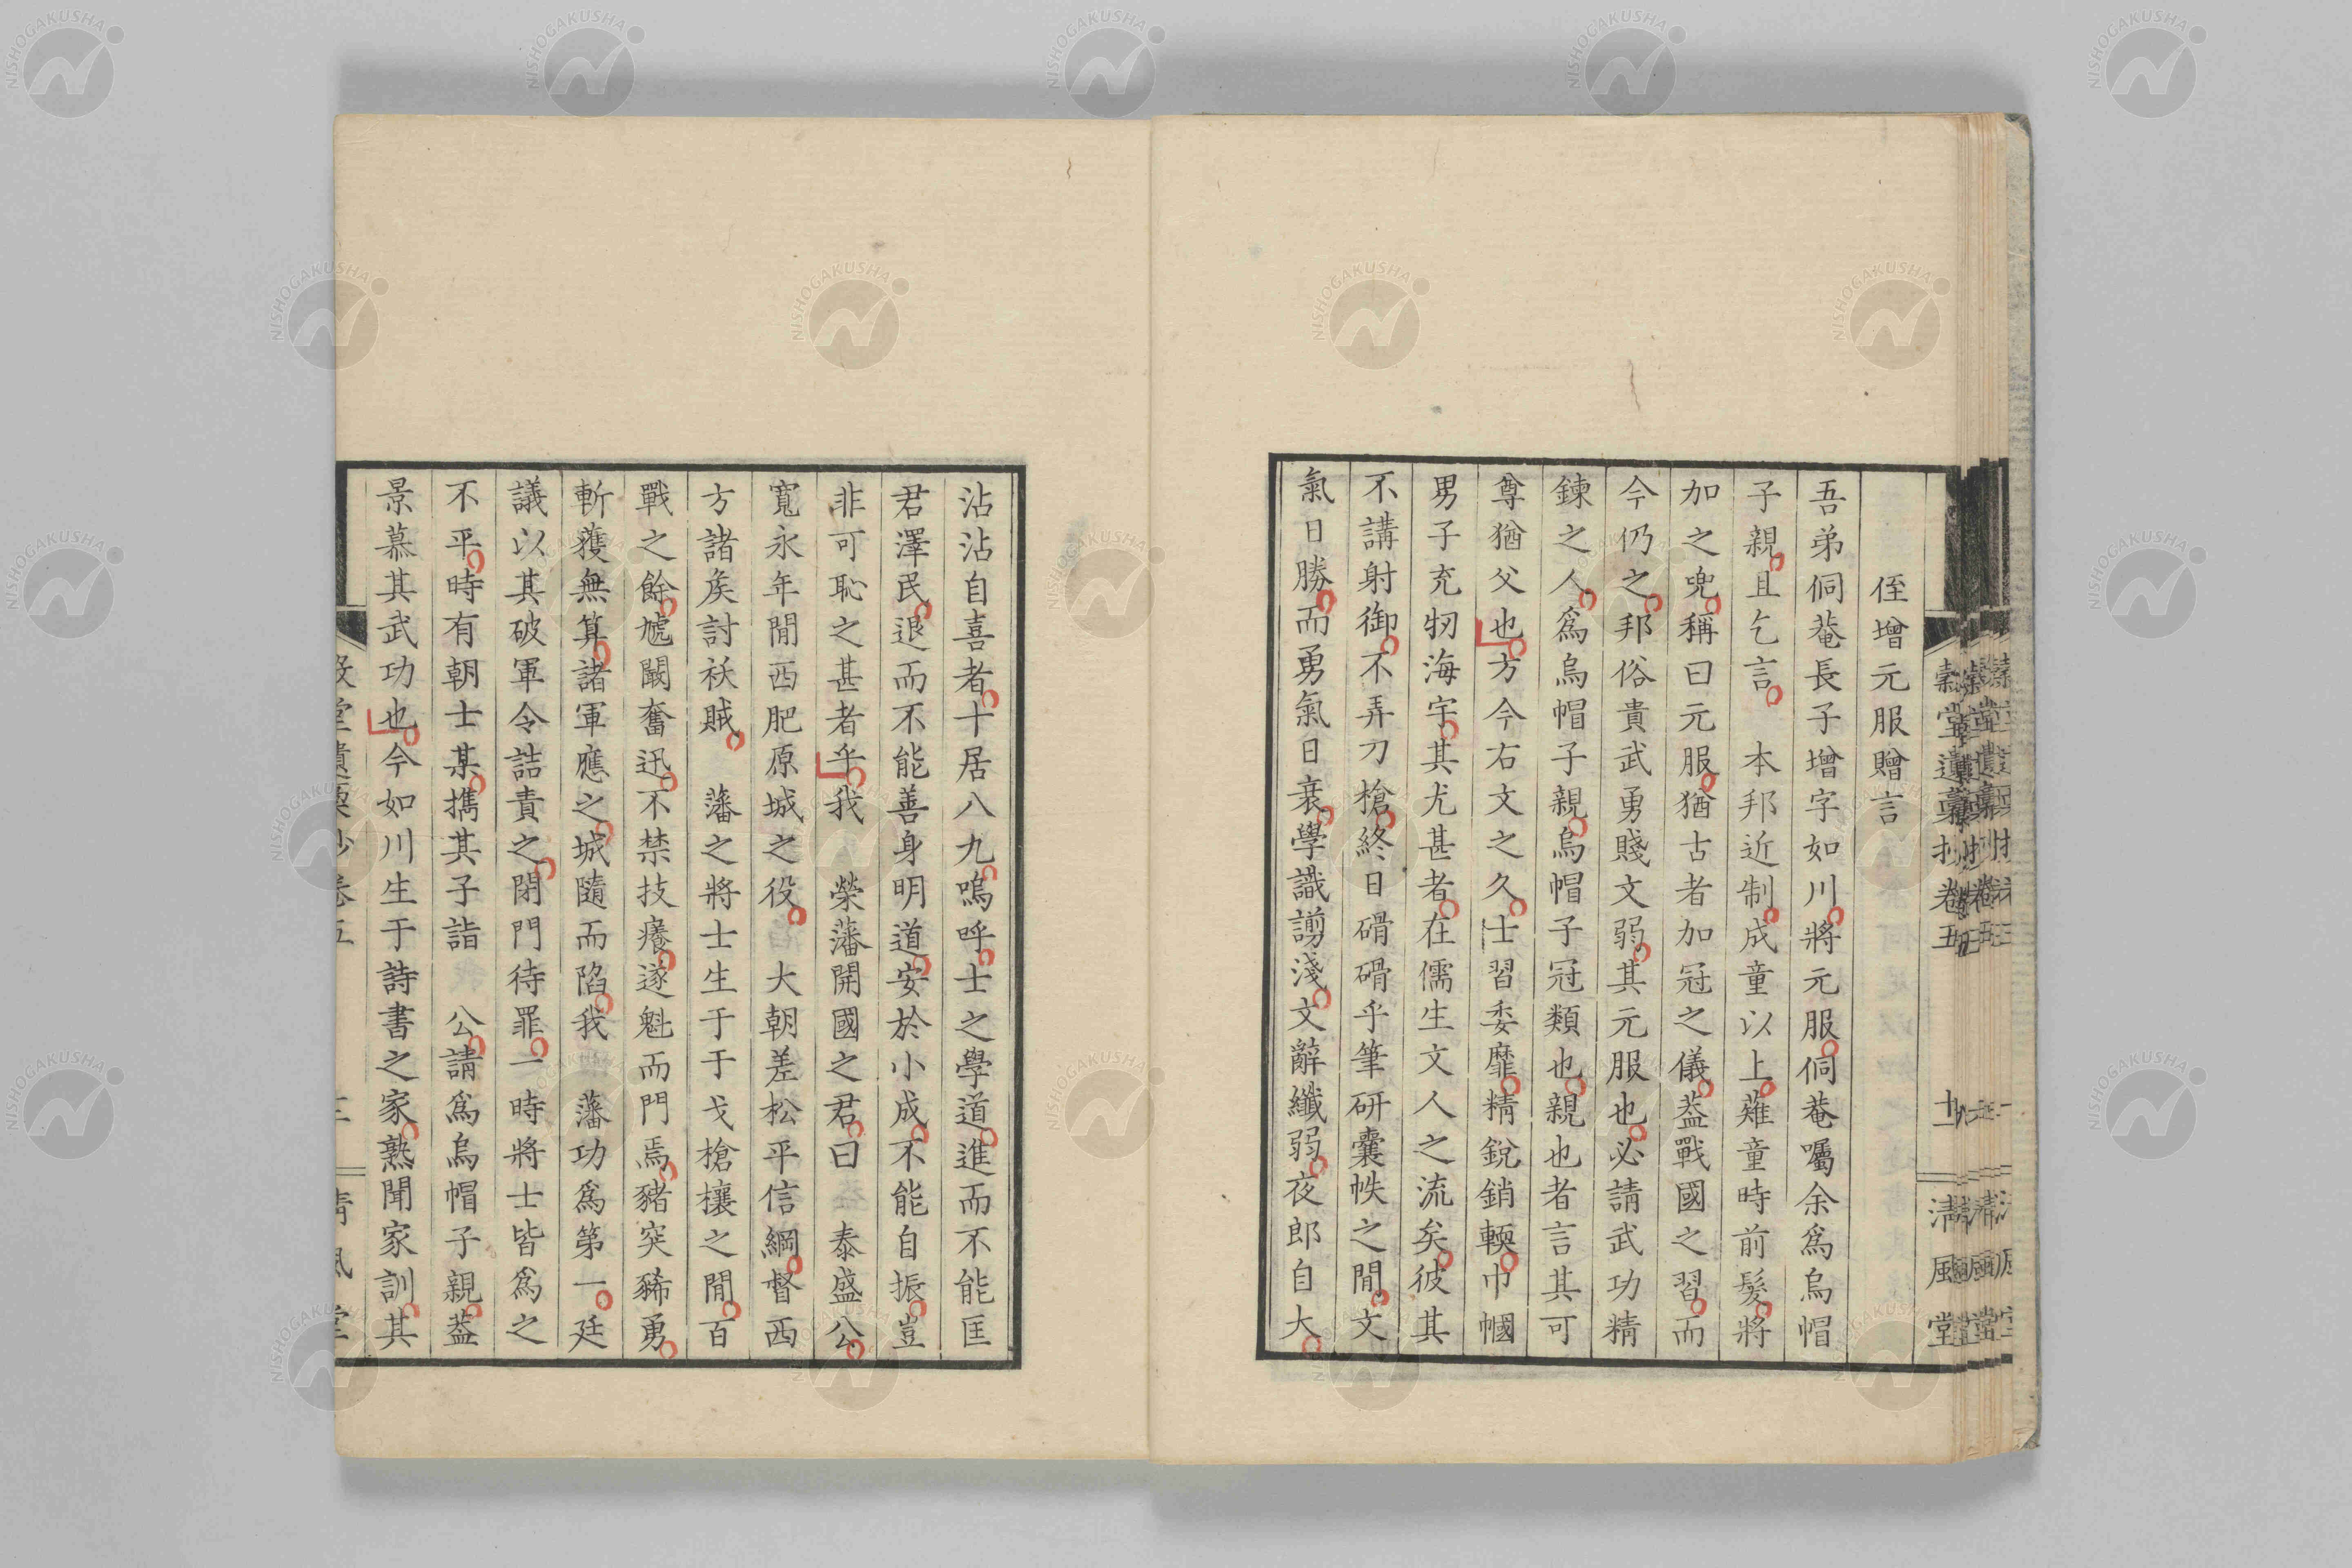 侄增元服贈言
吾弟侗菴長子增字如川將元服侗菴囑余爲烏帽
子親且乞言　本邦近制成童以上薙童時前髮將
加之兜稱曰元服猶古者加冠之儀葢戰國之習而
今仍之邦俗貴武勇賤文弱其元服也必請武功精
鍊之人爲烏帽子親烏帽子冠類也親也者言其可
尊猶父也方今右文之久士習委靡精銳銷輭巾幗
男子充牣海宇其尤甚者在儒生文人之流矣彼其
不講射御不弄刀槍終日磆磆乎筆研囊帙之閒文
氣日勝而勇氣日衰學識謭淺文辭纖弱夜郎自大
沾沾自喜者十居八九嗚呼士之學道進而不能匡
君澤民退而不能善身明道安於小成不能自振豈
非可恥之甚者乎我　榮藩開國之君曰　泰盛公
寬永年閒西肥原城之役　大朝差松平信綱督西
方諸矦討袄賊　藩之將士生于干戈槍攘之閒百
戰之餘虓闞奮迅不禁技癢遂魁而門焉豬突豨勇
斬獲無算諸軍應之城隨而陷我　藩功爲第一廷
議以其破軍令詰責之閉門待罪一時將士皆爲之
不平時有朝士某攜其子詣　公請爲烏帽子親葢
景慕其武功也今如川生于詩書之家熟聞家訓其
縠堂遺稾抄卷五
清風堂